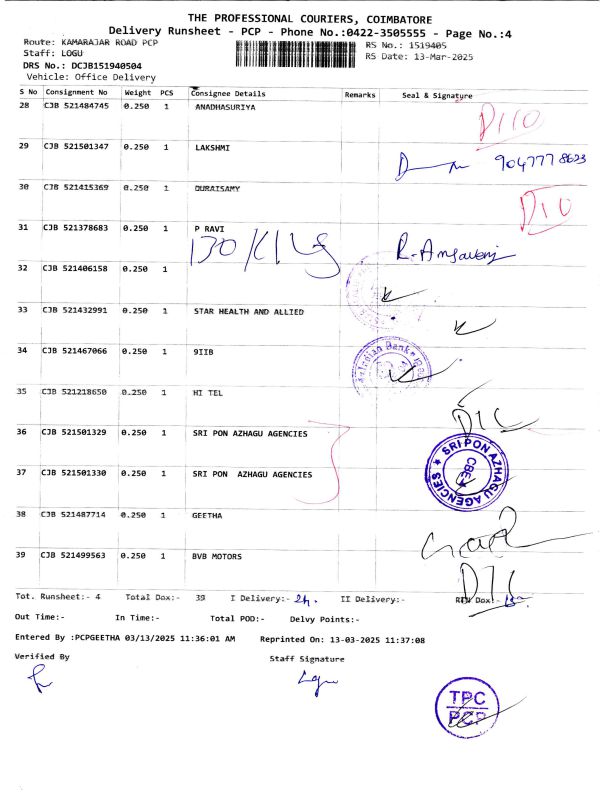 THE PROFESSIONAL COURIERS, COIMBATORE
Delivery Runsheet - PCP - Phone No.:0422-3505555 - Page No.:4
Route: KAMARAJAR ROAD PCP RS No.: 1519405
Staff: LOGU RS Date: 13-Mar-2025
DRS No.: DCJB151940504
Vehicle: Office Delivery
S No Consignment No Weight PCS Consignee Details Remarks Seal & Signature
28 CJB 521484745 0.250 1 ANADHASURIYA
29 CJB 521501347 0.250 1 LAKSHMI 9047778623
30 CJB 521415369 0.250 1 DURAISAMY
31 CJB 521378683 0.250 1 P RAVI
32 CJB 521406158 0.250 1
33 CJB 521432991 0.250 1 STAR HEALTH AND ALLIED
34 CJB 521467066 0.250 1 9IIB
35 CJB 521218650 0.250 1 HI TEL
36 CJB 521501329 0.250 1 SRI PON AZHAGU AGENCIES
37 CJB 521501330 0.250 1 SRI PON AZHAGU AGENCIES
SRI PON AZHAGU AGENCIES
CBE
38 CJB 521487714 0.250 1 GEETHA
39 CJB 521499563 0.250 1 BVB MOTORS
Tot. Runsheet:- 4 Total Dox:- 39 I Delivery:- II Delivery:- Dox:-
Out Time:- In Time:- Total POD:- Delvy Points:-
Entered By :PCPGEETHA 03/13/2025 11:36:01 AM Reprinted On: 13-03-2025 11:37:08
Verified By Staff Signature
TPC
PCP